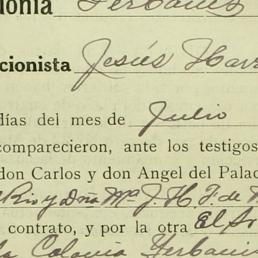 onia Ferbanis
cionista Jesús Har
días del mes de Julio
comparecieron, ante los testigos
don Carlos y don Angel del Palac
Rio y Dña Mª J. H. F. de
contrato, y por la otra El Sr
la Colonia Ferbanis